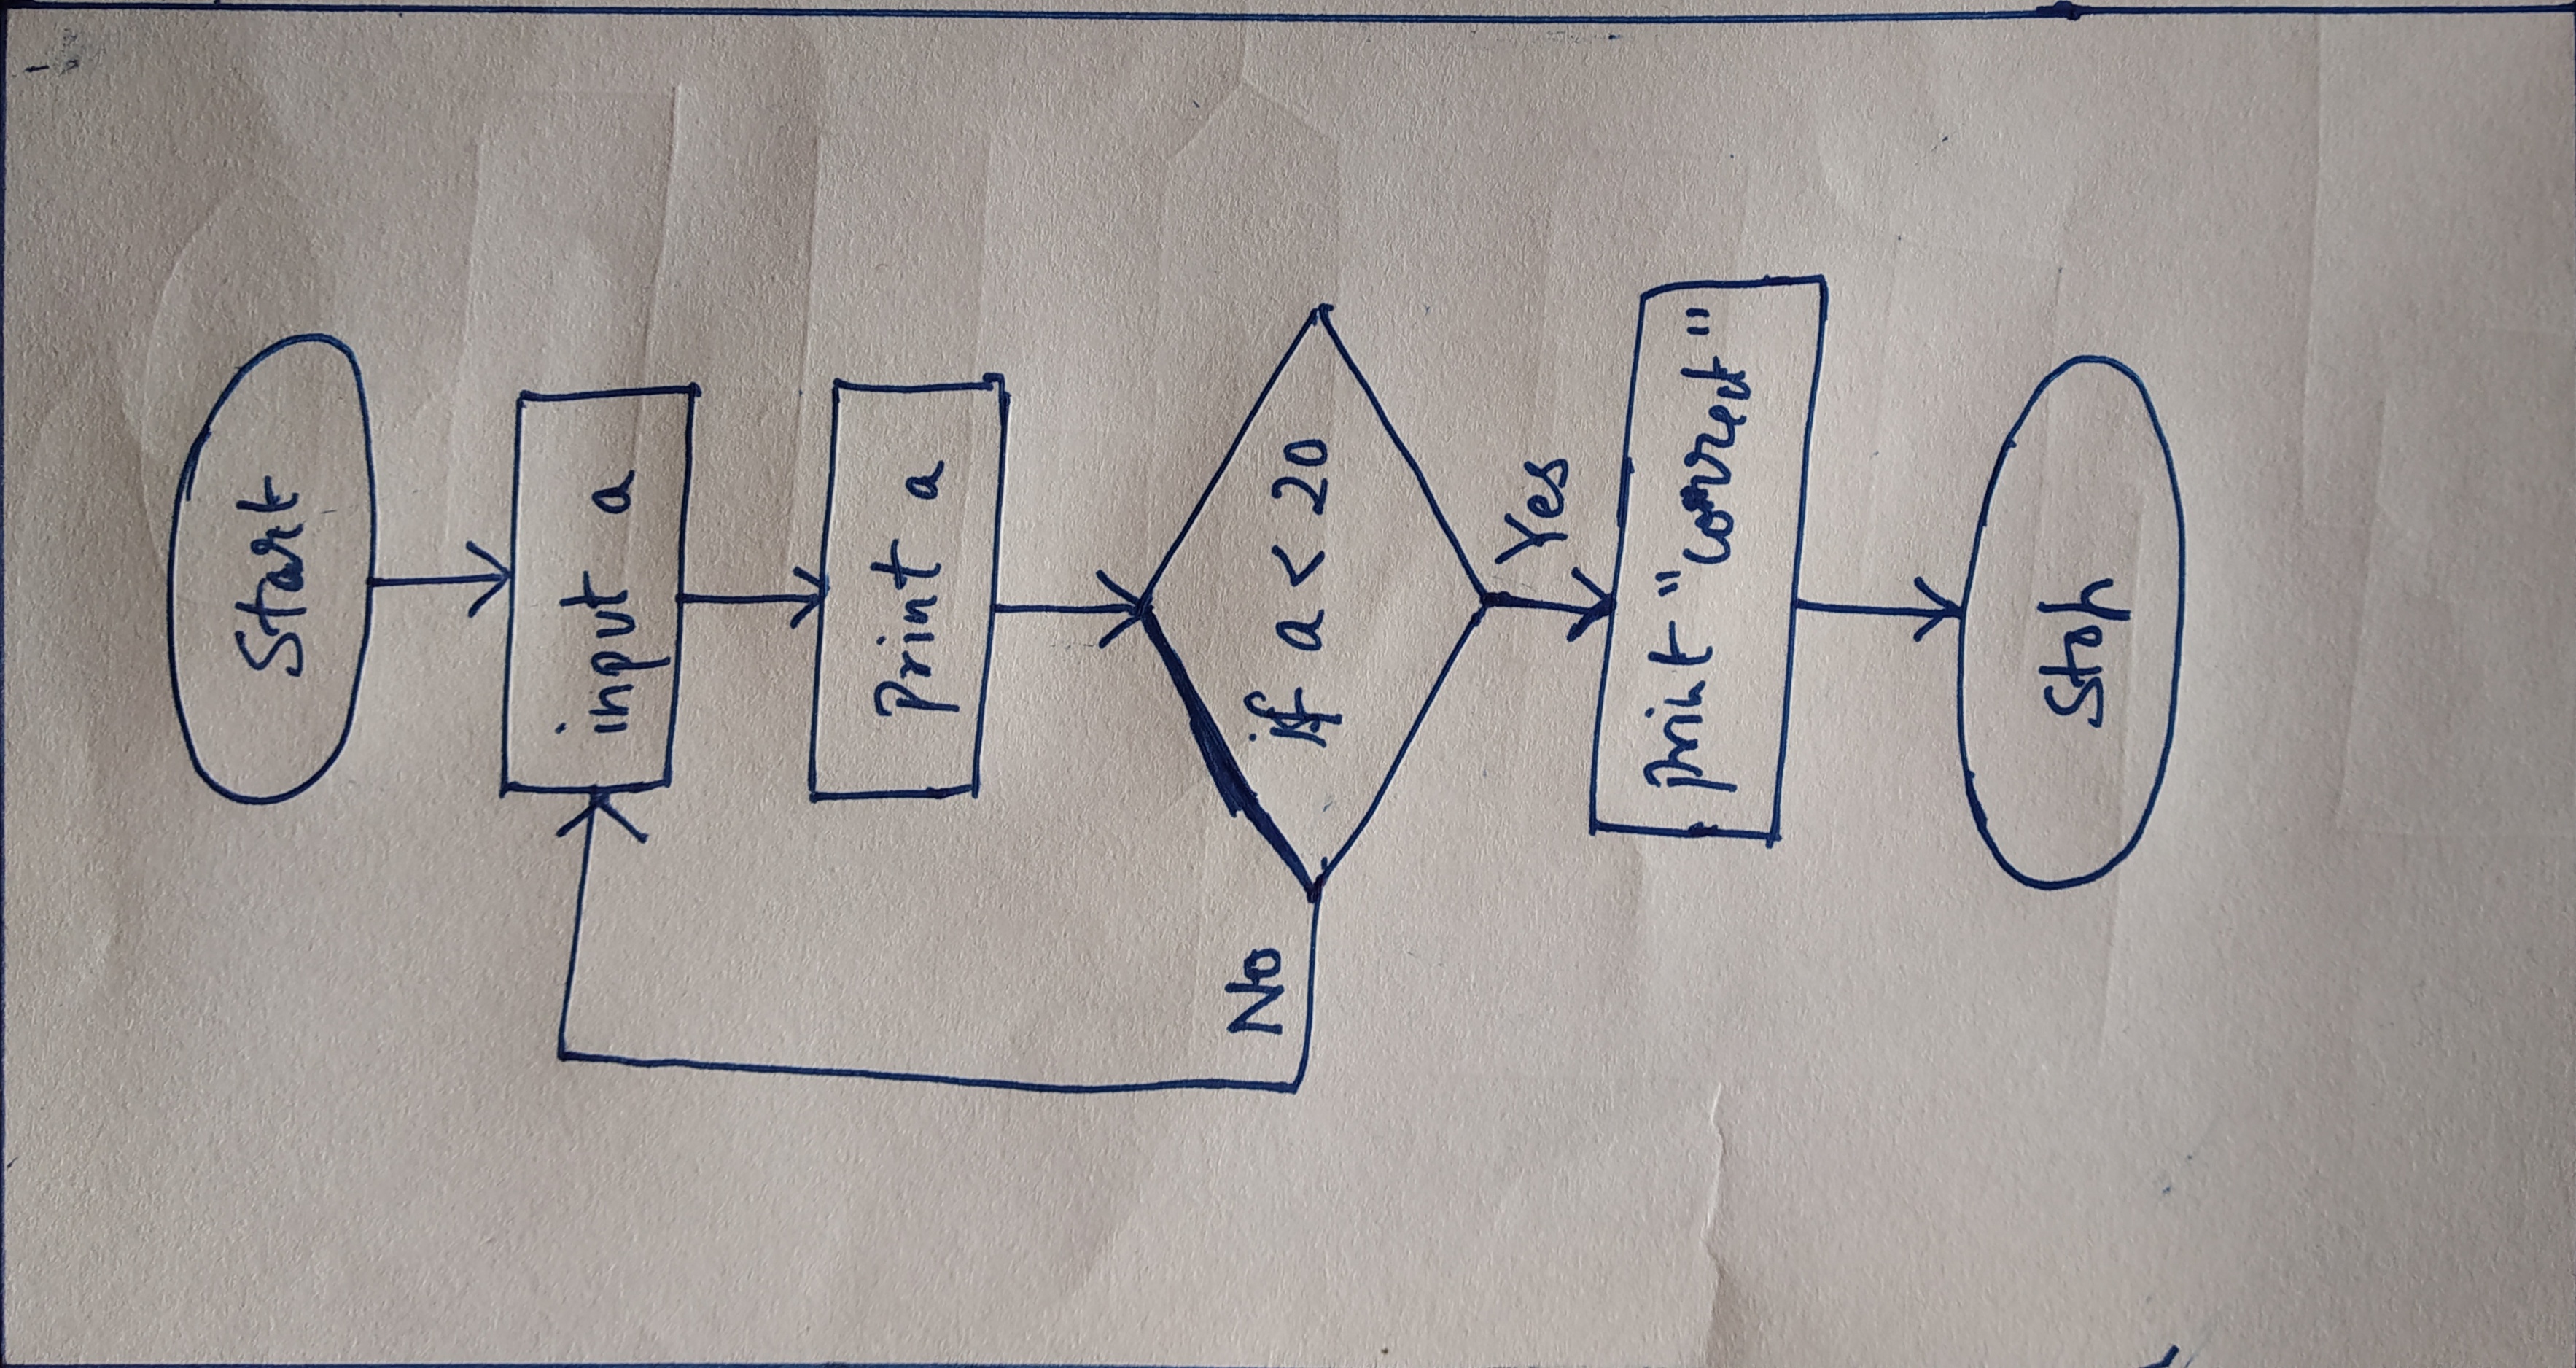 Start
input a
Print a
No
if a < 20
Yes
print "correct"
Stop